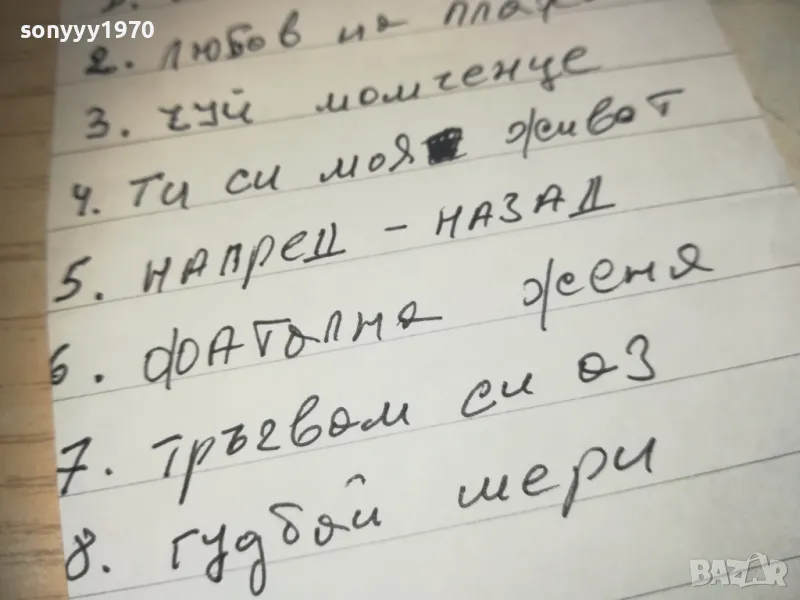 sonyyy1970
2. любов на
3. чуй момченце
4. ти си моя живот
5. напред - назад
6. фатална женя
7. тръгвам си аз
8. гудбай мери
BAZAR